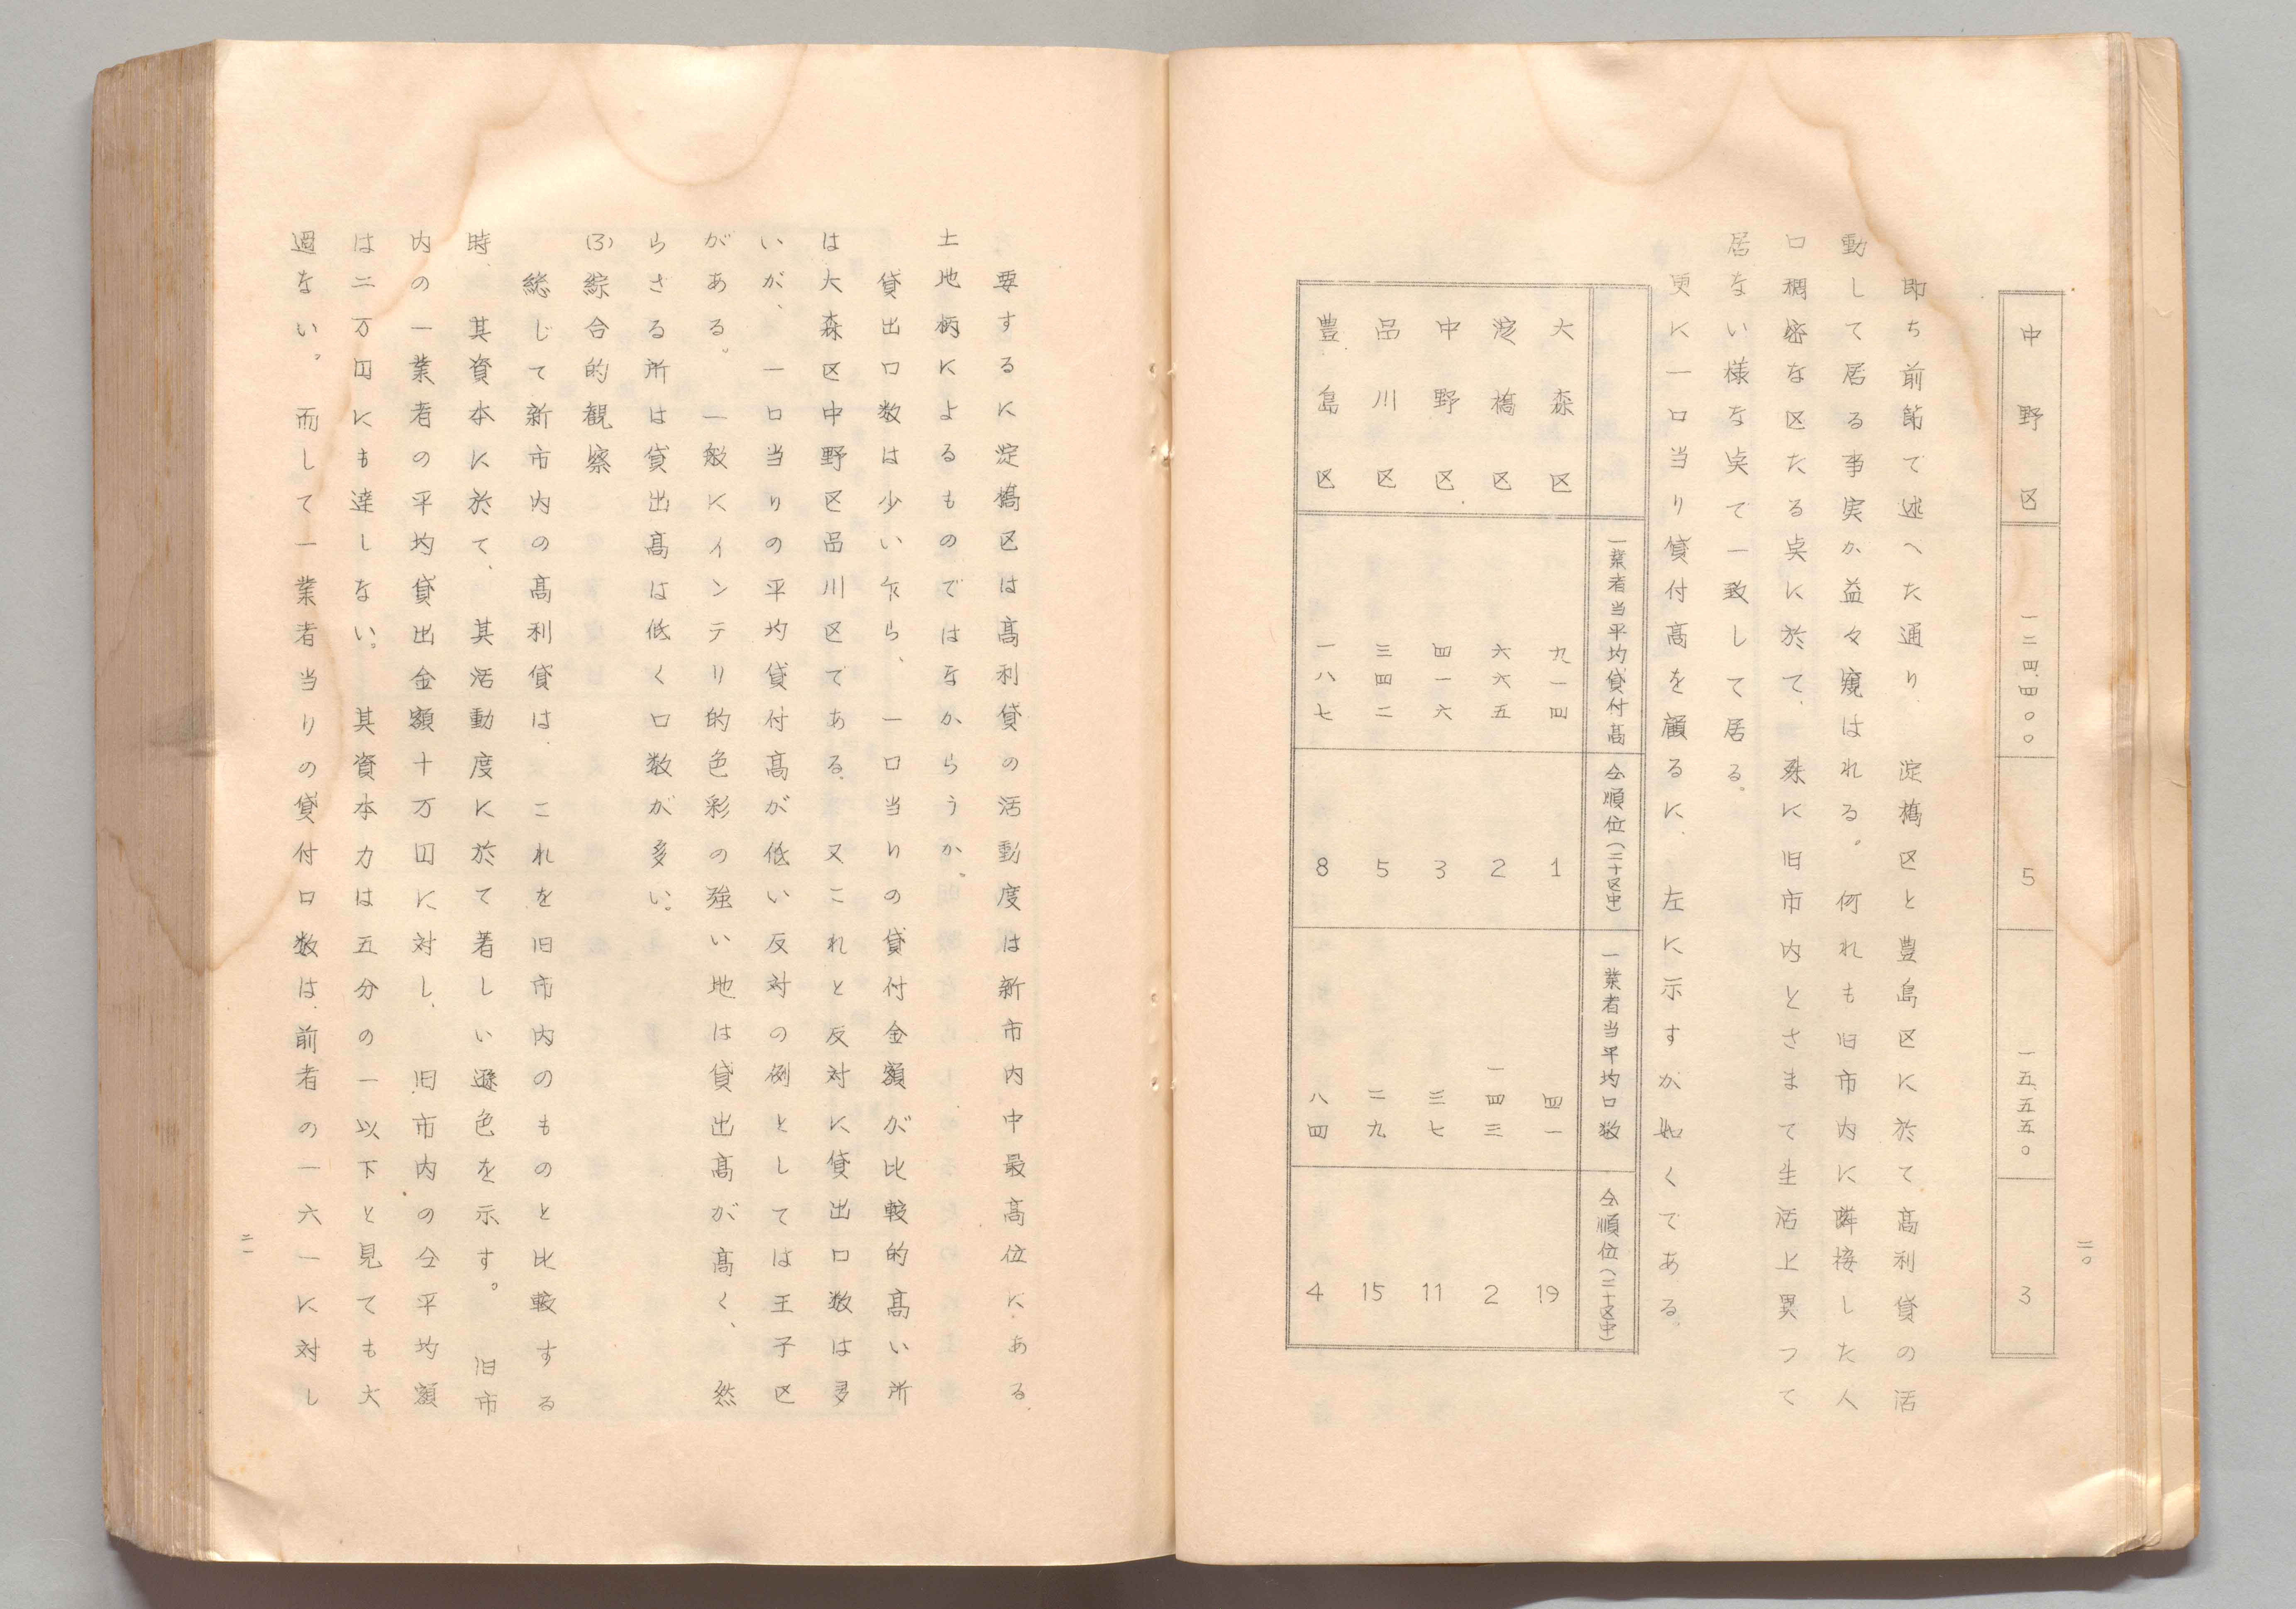 二〇
中野区 一二四、四〇〇 5 一五、五五〇 3
即ち前節で述へた通り 淀橋区と豊島区に於て高利貸の活
動して居る事実か益々窺はれる。何れも旧市内に隣接した人
口稠密な区たる点に於て、殊に旧市内とさまて生活上異つて
居ない様な点て一致して居る。
更に一口当り貸付高を顧るに、左に示すか如くである
一業者当平均貸付高 仝順位(二十区中) 一業者当平均口数 仝順位(二十区中)
大森区 九一四 1 四一 19
淀橋区 六六五 2 一四三 2
中野区 四一六 3 三七 11
品川区 三四二 5 二九 15
豊島区 一八七 8 八四 4
要するに淀橋区は高利貸の活動度は新市内中最高位にある
土地柄によるものではなからうか。
貸出口数は少い乍ら、一口当りの貸付金額が比較的高い所
は大森区中野区品川区てある、又これと反対に貸出口数は多
いが、一口当りの平均貸付高が低い反対の例としては王子区
がある。一般にインテリ的色彩の強い地は貸出高が高く、然
らさる所は貸出高は低く口数が多い。
(3)綜合的観察
総じて新市内の高利貸は、これを旧市内のものと比較する
時、其資本に於て、其活動度に於て著しい遜色を示す。旧市
内の一業者の平均貸出金額十万円に対し、旧市内の仝平均額
は二万円にも達しない。其資本力は五分の一以下と見ても大
過ない。而して一業者当りの貸付口数は、前者の一六一に対し
二一